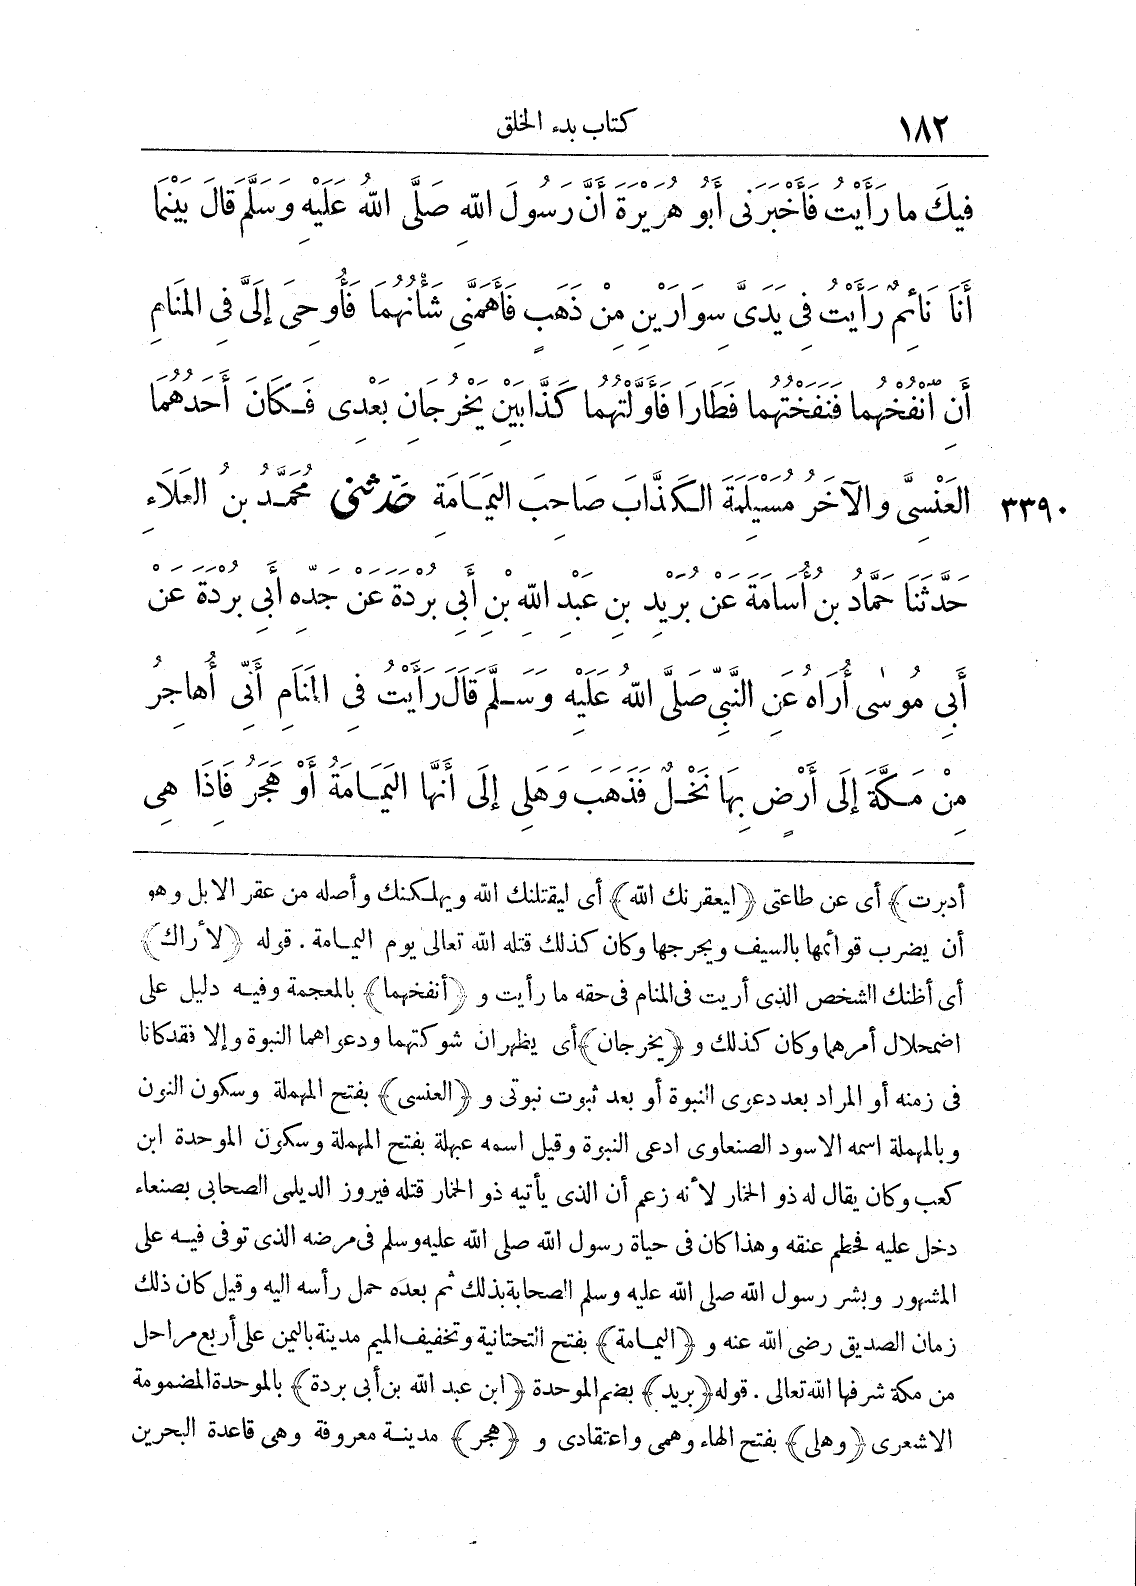 ١٨٢
كتاب بدء الخلق
فِيكَ ما رَأَيْتُ فَأَخْبَرَنِى أَبُو هُرَيْرَةَ أَنَّ رَسُولَ اللهِ صَلَّى اللهُ عَلَيْهِ وَسَلَّمَ قَالَ بَيْنَمَا
أَنَا نَائِمٌ رَأَيْتُ فِى يَدَىَّ سِوَارَيْنِ مِنْ ذَهَبٍ فَأَهَمَّنِى شَأْنُهُمَا فَأُوحِىَ إِلَىَّ فِى المَنَامِ
أَنِ انْفُخْهُمَا فَنَفَخْتُهُمَا فَطَارَا فَأَوَّلْتُهُما كَذَّابَيْنِ يَخْرُجَانِ بَعْدِى فَكَانَ أَحَدُهُمَا
العَنْسِىَّ والآخَرُ مُسَيْلِمَةَ الكَذَّابَ صَاحِبَ اليَمَامَةِ حَدَّثَنِى مُحَمَّدُ بنُ العَلَاءِ
٣٣٩٠
حَدَّثَنَا حَمَّادُ بنُ أُسَامَةَ عَنْ بُرَيْدِ بنِ عَبْدِ اللهِ بْنِ أَبِى بُرْدَةَ عَنْ جَدِّهِ أَبِى بُرْدَةَ عَنْ
أَبِى مُوسٰى أُرَاهُ عَنِ النَّبِىِّ صَلَّى اللهُ عَلَيْهِ وَسَلَّمَ قَالَ رَأَيْتُ فِى المَنَامِ أَنِّى أُهاجِرُ
مِنْ مَكَّةَ إِلَى أَرْضٍ بِهَا نَخْلٌ فَذَهَبَ وَهَلِى إِلَى أَنَّها اليَمَامَةُ أَوْ هَجَرُ فَاِذَا هِىَ
أدبرت﴾ أى عن طاعتى ﴿ليعقرنك الله﴾ أى ليقتلنك الله ويهلكنك وأصله من عقر الابل وهو
أن يضرب قوائمها بالسيف ويجرحها وكان كذلك قتله الله تعالى يوم اليمامة . قوله ﴿لأراك﴾
أى أظنك الشخص الذى أريت فى المنام فى حقه ما رأيت و ﴿أنفخهما﴾ بالمعجمة وفيه دليل على
اضمحلال أمرهما وكان كذلك و ﴿يخرجان﴾ أى يظهران شوكتهما ودعواهما النبوة وإلا فقد كانا
فى زمنه أو المراد بعد دعوى النبوة أو بعد ثبوت نبوتى و ﴿العنسى﴾ بفتح المهملة وسكون النون
وبالمهملة اسمه الاسود الصنعاوى ادعى النبوة وقيل اسمه عبهلة بفتح المهملة وسكون الموحدة ابن
كعب وكان يقال له ذو الخمار لأنه زعم أن الذى يأتيه ذو الخمار قتله فيروز الديلمى الصحابى بصنعاء
دخل عليه فحطم عنقه وهذا كان فى حياة رسول الله صلى الله عليه وسلم فى مرضه الذى توفى فيه على
المشهور وبشر رسول الله صلى الله عليه وسلم الصحابة بذلك ثم بعده حمل رأسه اليه وقيل كان ذلك
زمان الصديق رضى الله عنه و ﴿اليمامة﴾ بفتح التحتانية وتخفيف الميم مدينة باليمن على أربع مراحل
من مكة شرفها الله تعالى . قوله ﴿بريد﴾ بضم الموحدة ﴿ابن عبد الله بن أبى بردة﴾ بالموحدة المضمومة
الاشعرى ﴿وهلى﴾ بفتح الهاء وهمى واعتقادى و ﴿هجر﴾ مدينة معروفة وهى قاعدة البحرين